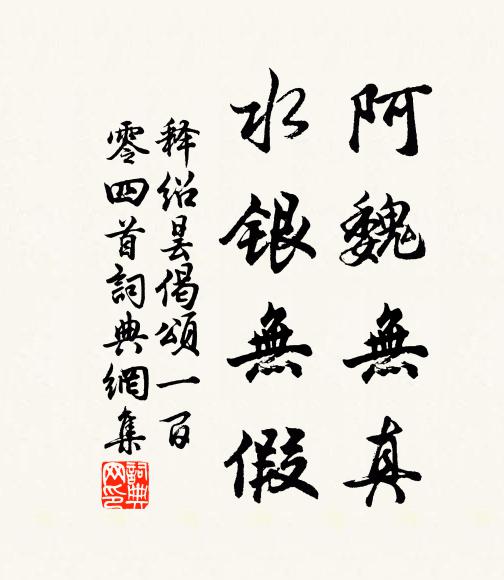 阿魏無真
水銀無假
释绍昙偈頌一百
零四首詞典網集
詞典
网印